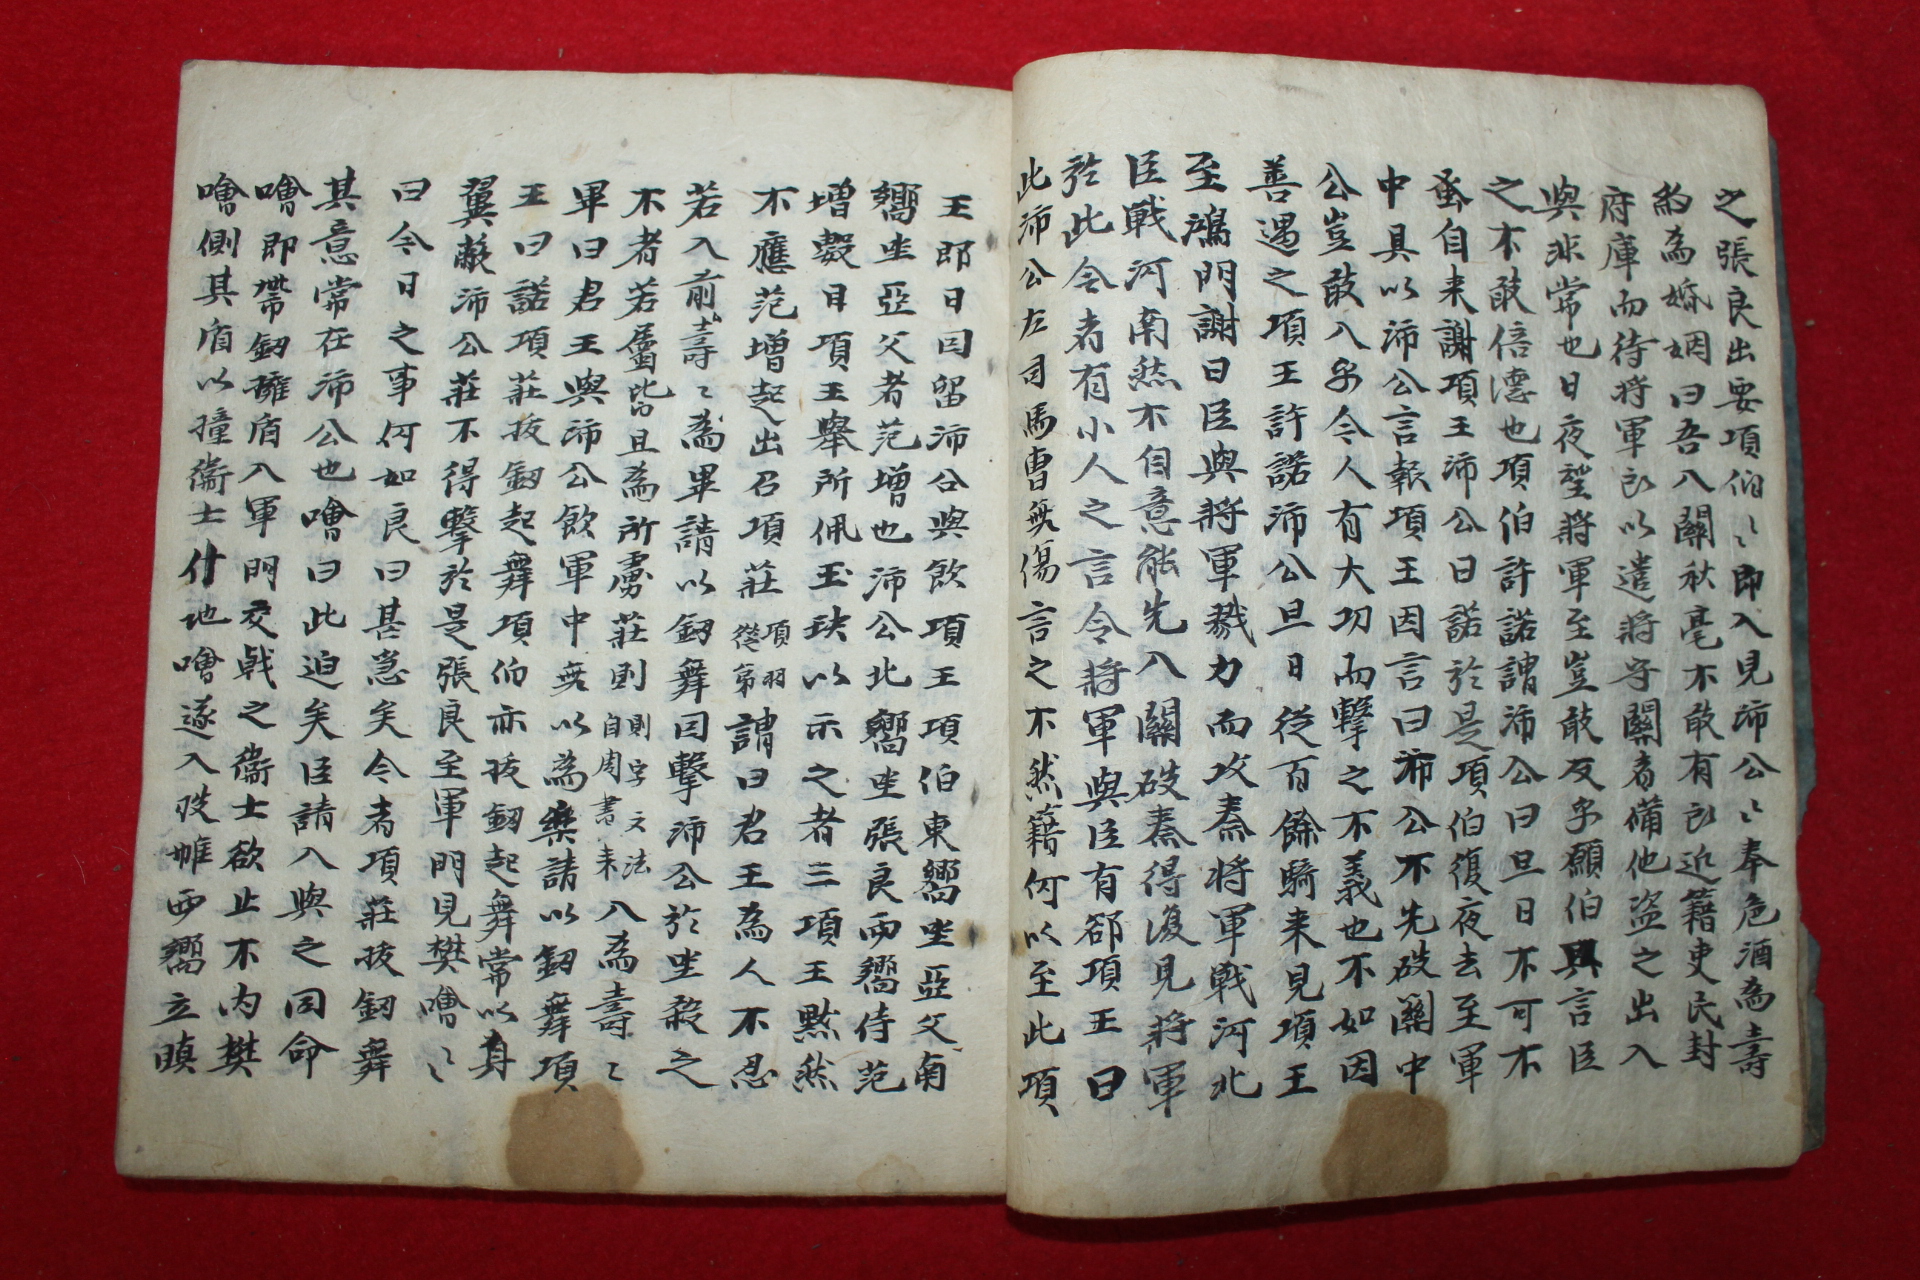 之張良出要項伯〻即入見沛公〻奉卮酒為壽
約為婚姻曰吾入關秋毫不敢有所近籍吏民封
府庫而待將軍所以遣將守關者備他盜之出入
與非常也日夜望將軍至豈敢反乎願伯具言臣
之不敢倍德也項伯許諾謂沛公曰旦日不可不
蚤自来謝項王沛公曰諾於是項伯復夜去至軍
中具以沛公言報項王因言曰沛公不先破關中
公豈敢入乎今人有大功而擊之不義也不如因
善遇之項王許諾沛公旦日從百餘騎来見項王
至鴻門謝曰臣與將軍戮力而攻秦將軍戰河北
臣戰河南然不自意能先入關破秦得復見將軍
於此今者有小人之言令將軍與臣有郤項王曰
此沛公左司馬曹無傷言之不然籍何以至此項
王即日因留沛公與飲項王項伯東嚮坐亞父南
嚮坐亞父者范增也沛公北嚮坐張良西嚮侍范
增數目項王舉所佩玉玦以示之者三項王默然
不應范增起出召項莊項羽從弟謂曰君王為人不忍
若入前壽〻為畢請以釰舞因擊沛公於坐殺之
不者若屬皆且為所虜莊則則字文法自周書来入為壽〻
畢曰君王與沛公飲軍中無以為樂請以釰舞項
王曰諾項莊拔釰起舞項伯亦拔釰起舞常以身
翼蔽沛公莊不得擊於是張良至軍門見樊噲〻
曰今日之事何如良曰甚急矣今者項莊拔釰舞
其意常在沛公也噲曰此迫矣臣請入與之同命
噲即帶釰擁盾入軍門交戟之衞士欲止不內樊
噲側其盾以撞衞士什地噲遂入披帷西嚮立瞋